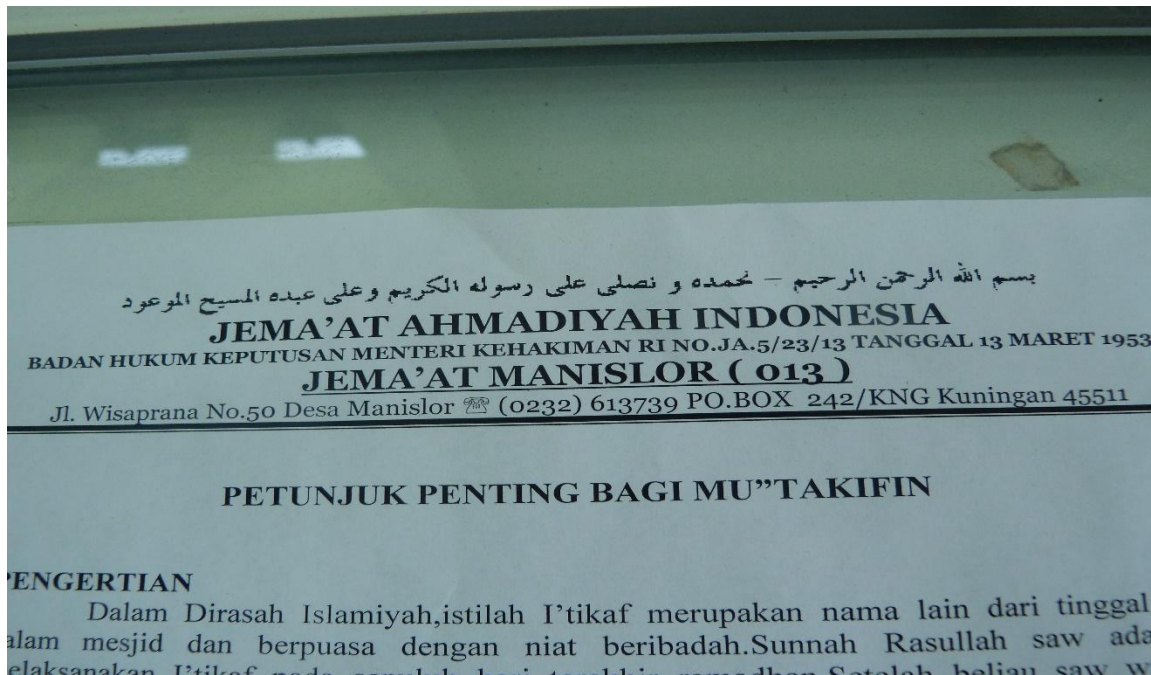 بسم الله الرحمن الرحيم – نحمده و نصلى على رسوله الكريم وعلى عبده المسيح الموعود
JEMA'AT AHMADIYAH INDONESIA
BADAN HUKUM KEPUTUSAN MENTERI KEHAKIMAN RI NO.JA.5/23/13 TANGGAL 13 MARET 1953
JEMA'AT MANISLOR ( 013 )
Jl. Wisaprana No.50 Desa Manislor ☏ (0232) 613739 PO.BOX 242/KNG Kuningan 45511
PETUNJUK PENTING BAGI MU”TAKIFIN
PENGERTIAN
Dalam Dirasah Islamiyah,istilah I'tikaf merupakan nama lain dari tinggal
alam mesjid dan berpuasa dengan niat beribadah.Sunnah Rasullah saw ada
elaksanakan I'tikaf pada sepuluh hari terakhir ramadhan.Setelah beliau saw w